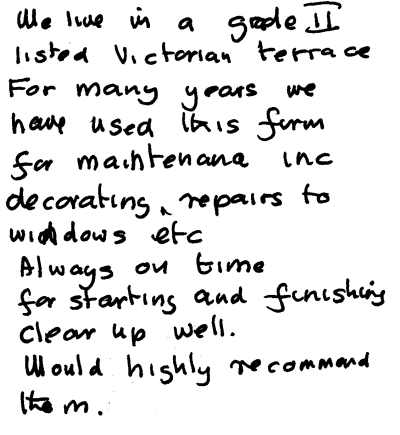 We live in a grade II
listed Victorian terrace
For many years we
have used this firm
for maintenance inc
decorating, repairs to
windows etc
Always on time
for starting and finishing
clear up well.
Would highly recommend
them.